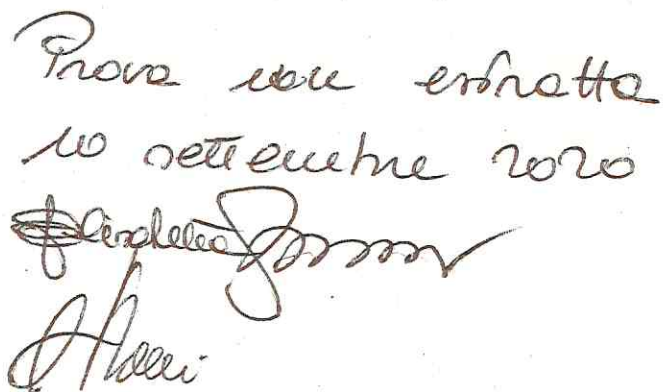 Prova non estratta
10 settembre 2020